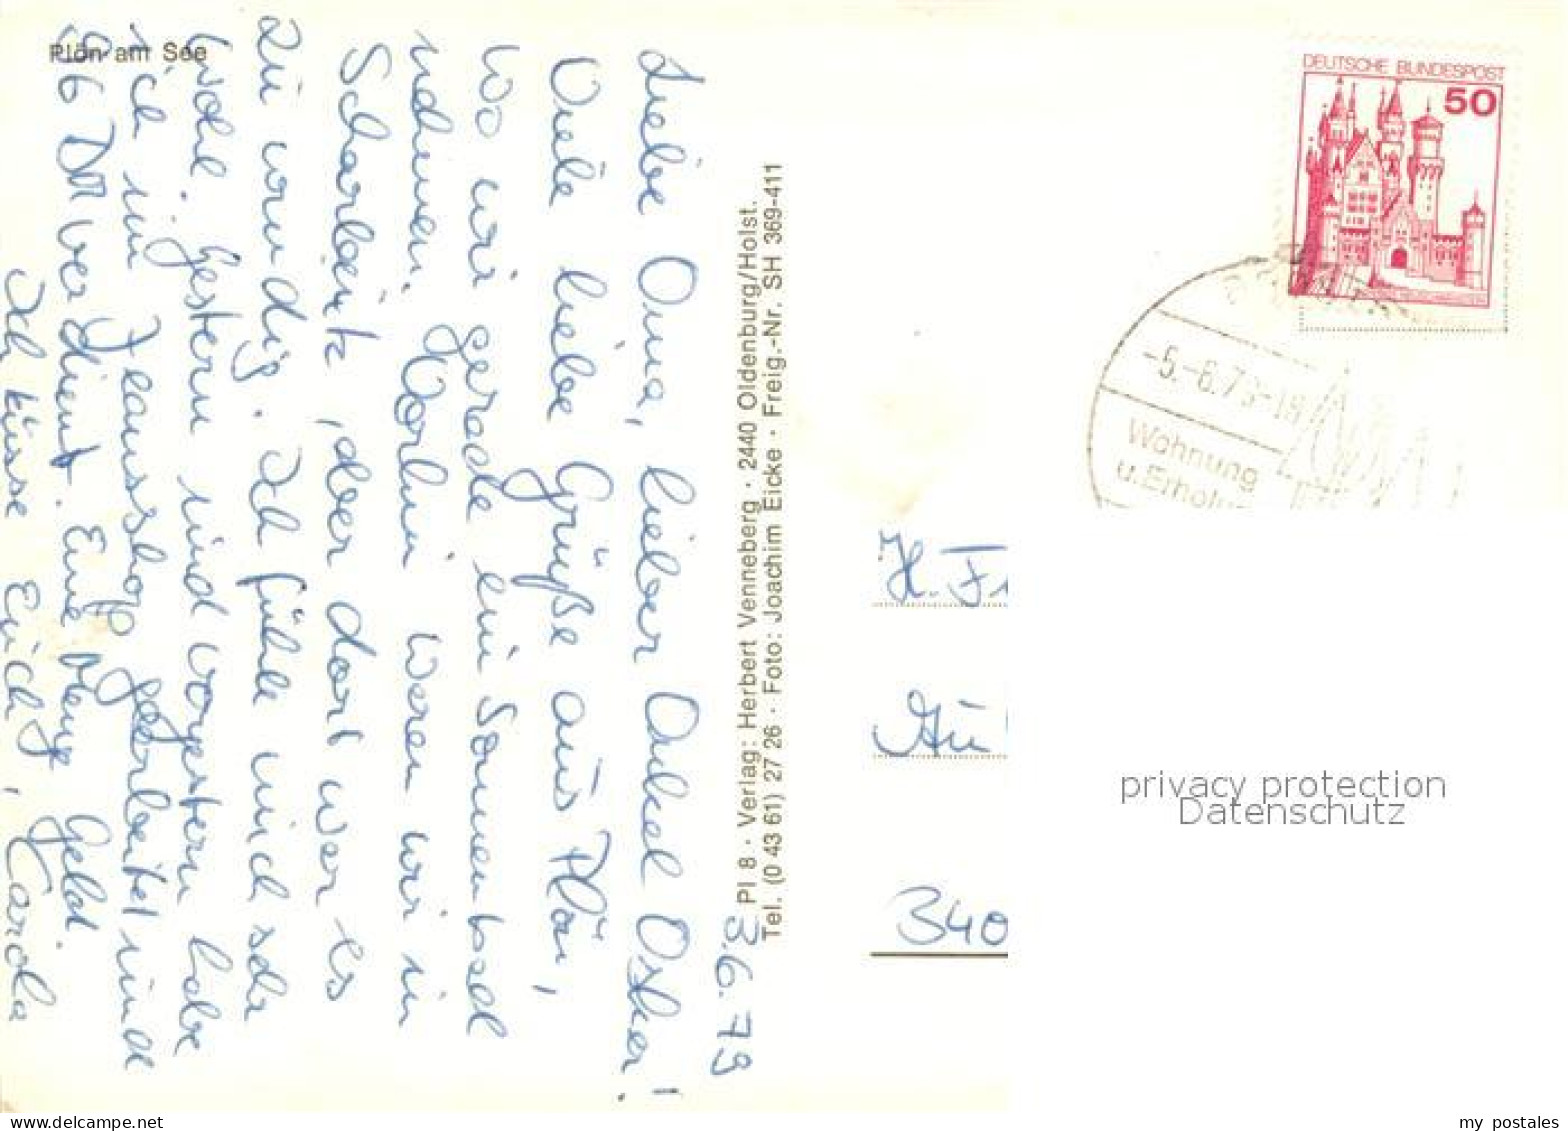 Plön am See
3.6.79
Liebe Oma, lieber Onkel Oskar!
Viele liebe Grüße aus Plön,
wo wir gerade ein Sonnenbad
nehmen. Vorhin waren wir in
Scharbeutz, aber dort war es
zu windig. Ich fühle mich sehr
wohl. Gestern und vorgestern habe
ich im gearbeitet und
96 DM verdient. Eine Menge Geld.
Ich küsse Euch, Carola
Pl 8 · Verlag: Herbert Venneberg · 2440 Oldenburg/Holst.
Tel. (0 43 61) 27 26 · Foto: Joachim Eicke · Freig.-Nr. SH 369-411
DEUTSCHE BUNDESPOST
50
-5.-6.79-18
Wohnung
u. Erholu
H. Fr
340
privacy protection
Datenschutz
my postales